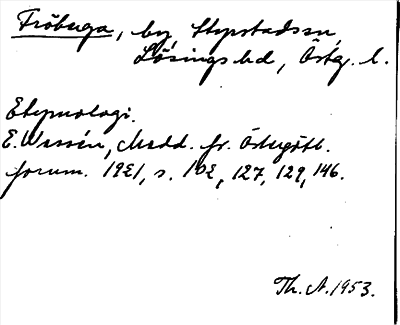 Fröbuga, by, Styrstadssn,
Lösings hd, Östg. l.
Etymologi.
E. Wessén, Medd. fr. Östergötl.
fornm. 1921, s. 102, 127, 129, 146.
Th. A. 1953.